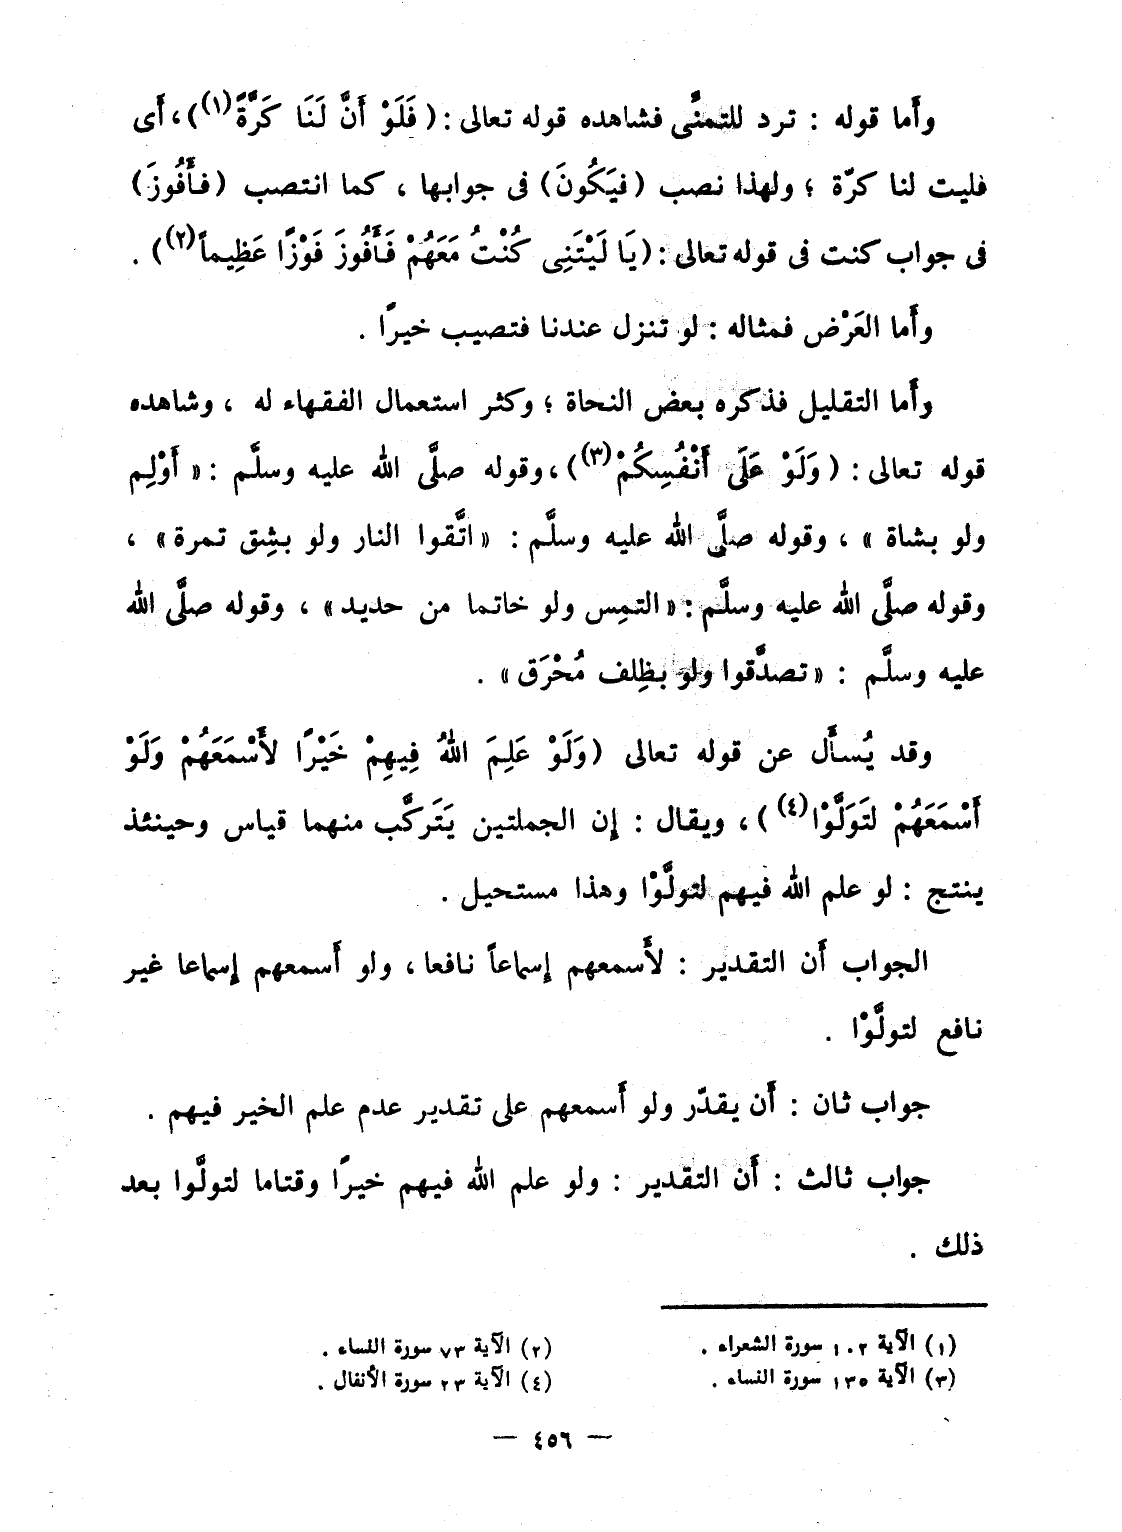 وأَما قوله : ترد للتمنَّى فشاهده قوله تعالى : ( فَلَوْ أَنَّ لَنَا كَرَّةً(١) )، أَى
فليت لنا كرّة ؛ ولهذا نصب ( فيَكُونَ ) فى جوابها ، كما انتصب ( فأَفُوزَ )
فى جواب كنت فى قوله تعالى : ( يَا لَيْتَنِى كُنْتُ مَعَهُمْ فَأَفُوزَ فَوْزًا عَظِيماً(٢) ) .
وأَما العَرْض فمثاله : لو تنزل عندنا فتصيب خيرًا .
وأَما التقليل فذكره بعض النحاة ؛ وكثر استعمال الفقهاء له ، وشاهده
قوله تعالى : ( وَلَوْ عَلَى أَنْفُسِكُمْ(٣) )، وقوله صلَّى الله عليه وسلَّم : « أَوْلِم
ولو بشاة » ، وقوله صلَّى الله عليه وسلَّم : « اتَّقوا النار ولو بشِق تمرة » ،
وقوله صلَّى الله عليه وسلَّم : « التمِس ولو خاتما من حديد » ، وقوله صلَّى الله
عليه وسلَّم : « تصدَّقوا ولو بظِلف مُحْرَق » .
وقد يُسأَل عن قوله تعالى ( وَلَوْ عَلِمَ اللهُ فِيهِمْ خَيْرًا لأَسْمَعَهُمْ وَلَوْ
أَسْمَعَهُمْ لتَوَلَّوْا(٤) ) ، ويقال : إِن الجملتين يَتَركَّب منهما قياس وحينئذ
ينتج : لو علم الله فيهم لتولَّوْا وهذا مستحيل .
الجواب أَن التقدير : لأَسمعهم إِسماعاً نافعا ، ولو أَسمعهم إِسماعا غير
نافع لتولَّوْا .
جواب ثان : أَن يقدّر ولو أَسمعهم على تقدير عدم علم الخير فيهم .
جواب ثالث : أَن التقدير : ولو علم الله فيهم خيرًا وقتاما لتولَّوا بعد
ذلك .
(١) الآية ١٠٢ سورة الشعراء . (٢) الآية ٧٣ سورة النساء .
(٣) الآية ١٣٥ سورة النساء . (٤) الآية ٢٣ سورة الأنفال .
— ٤٥٦ —